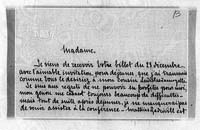 13
Madame,
Je viens de recevoir votre billet du 29 décembre
avec l'aimable invitation, pour déjeuner, que j'ai transmis
comme vous le désiriez à mon cousin
Je suis aux regrets de ne pouvoir en profiter pour moi,
mon genou me causant toujours beaucoup de difficultés -
mais tout de suite après déjeuner, je ne manquerai pas
de venir assister à la conférence - est